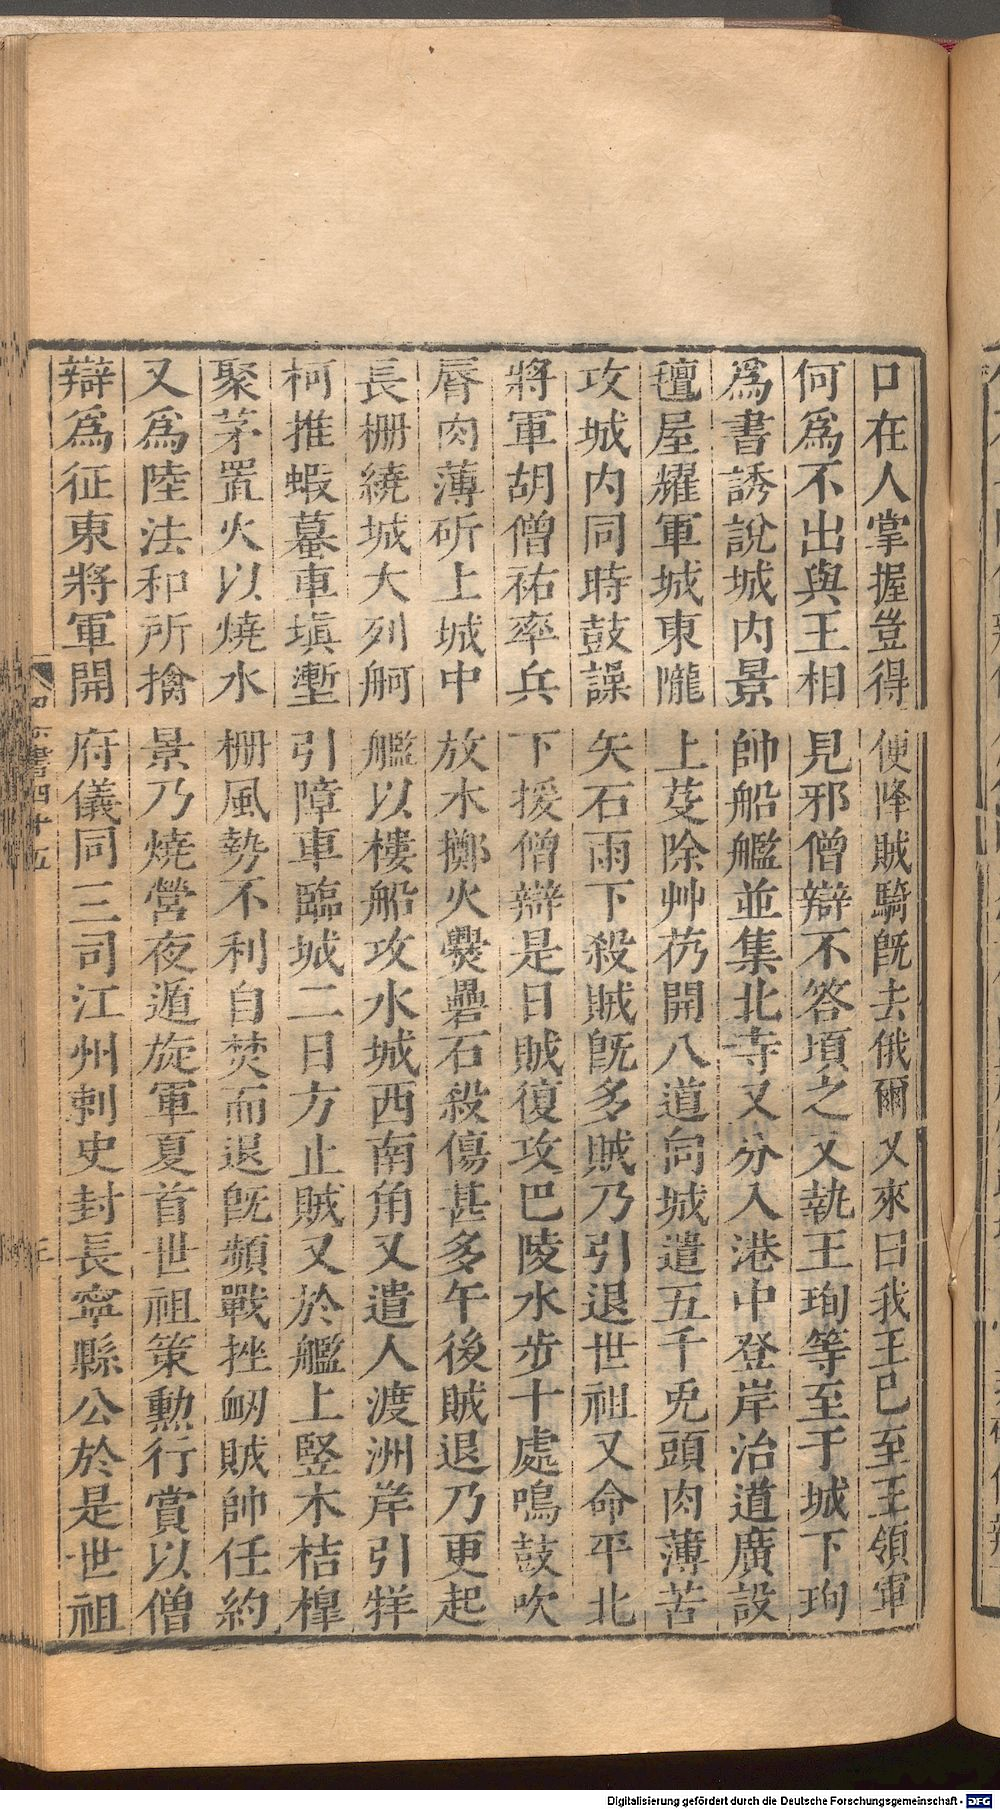 口在人掌握豈得便降賊騎旣去俄爾又來曰我王已至王領軍
何爲不出與王相見邪僧辯不答頃之又執王珣等至于城下珣
爲書誘說城內景帥船艦並集北寺又分入港中登岸治道廣設
氊屋耀軍城東隴上芟除艸芿開八道向城遣五千兎頭肉薄苦
攻城內同時鼓譟矢石雨下殺賊旣多賊乃引退世祖又命平北
將軍胡僧祐率兵下援僧辯是日賊復攻巴陵水步十處鳴鼓吹
脣肉薄斫上城中放木擲火爨礨石殺傷甚多午後賊退乃更起
長柵繞城大列舸艦以樓船攻水城西南角又遣人渡洲岸引牂
柯推蝦蟇車塡塹引障車臨城二日方止賊又於艦上豎木桔槹
聚茅置火以燒水柵風勢不利自焚而退旣頻戰挫衂賊帥任約
又爲陸法和所擒景乃燒營夜遁旋軍夏首世祖策勳行賞以僧
辯爲征東將軍開府儀同三司江州刺史封長寧縣公於是世祖
書四十五
Digitalisierung gefördert durch die Deutsche Forschungsgemeinschaft - DFG